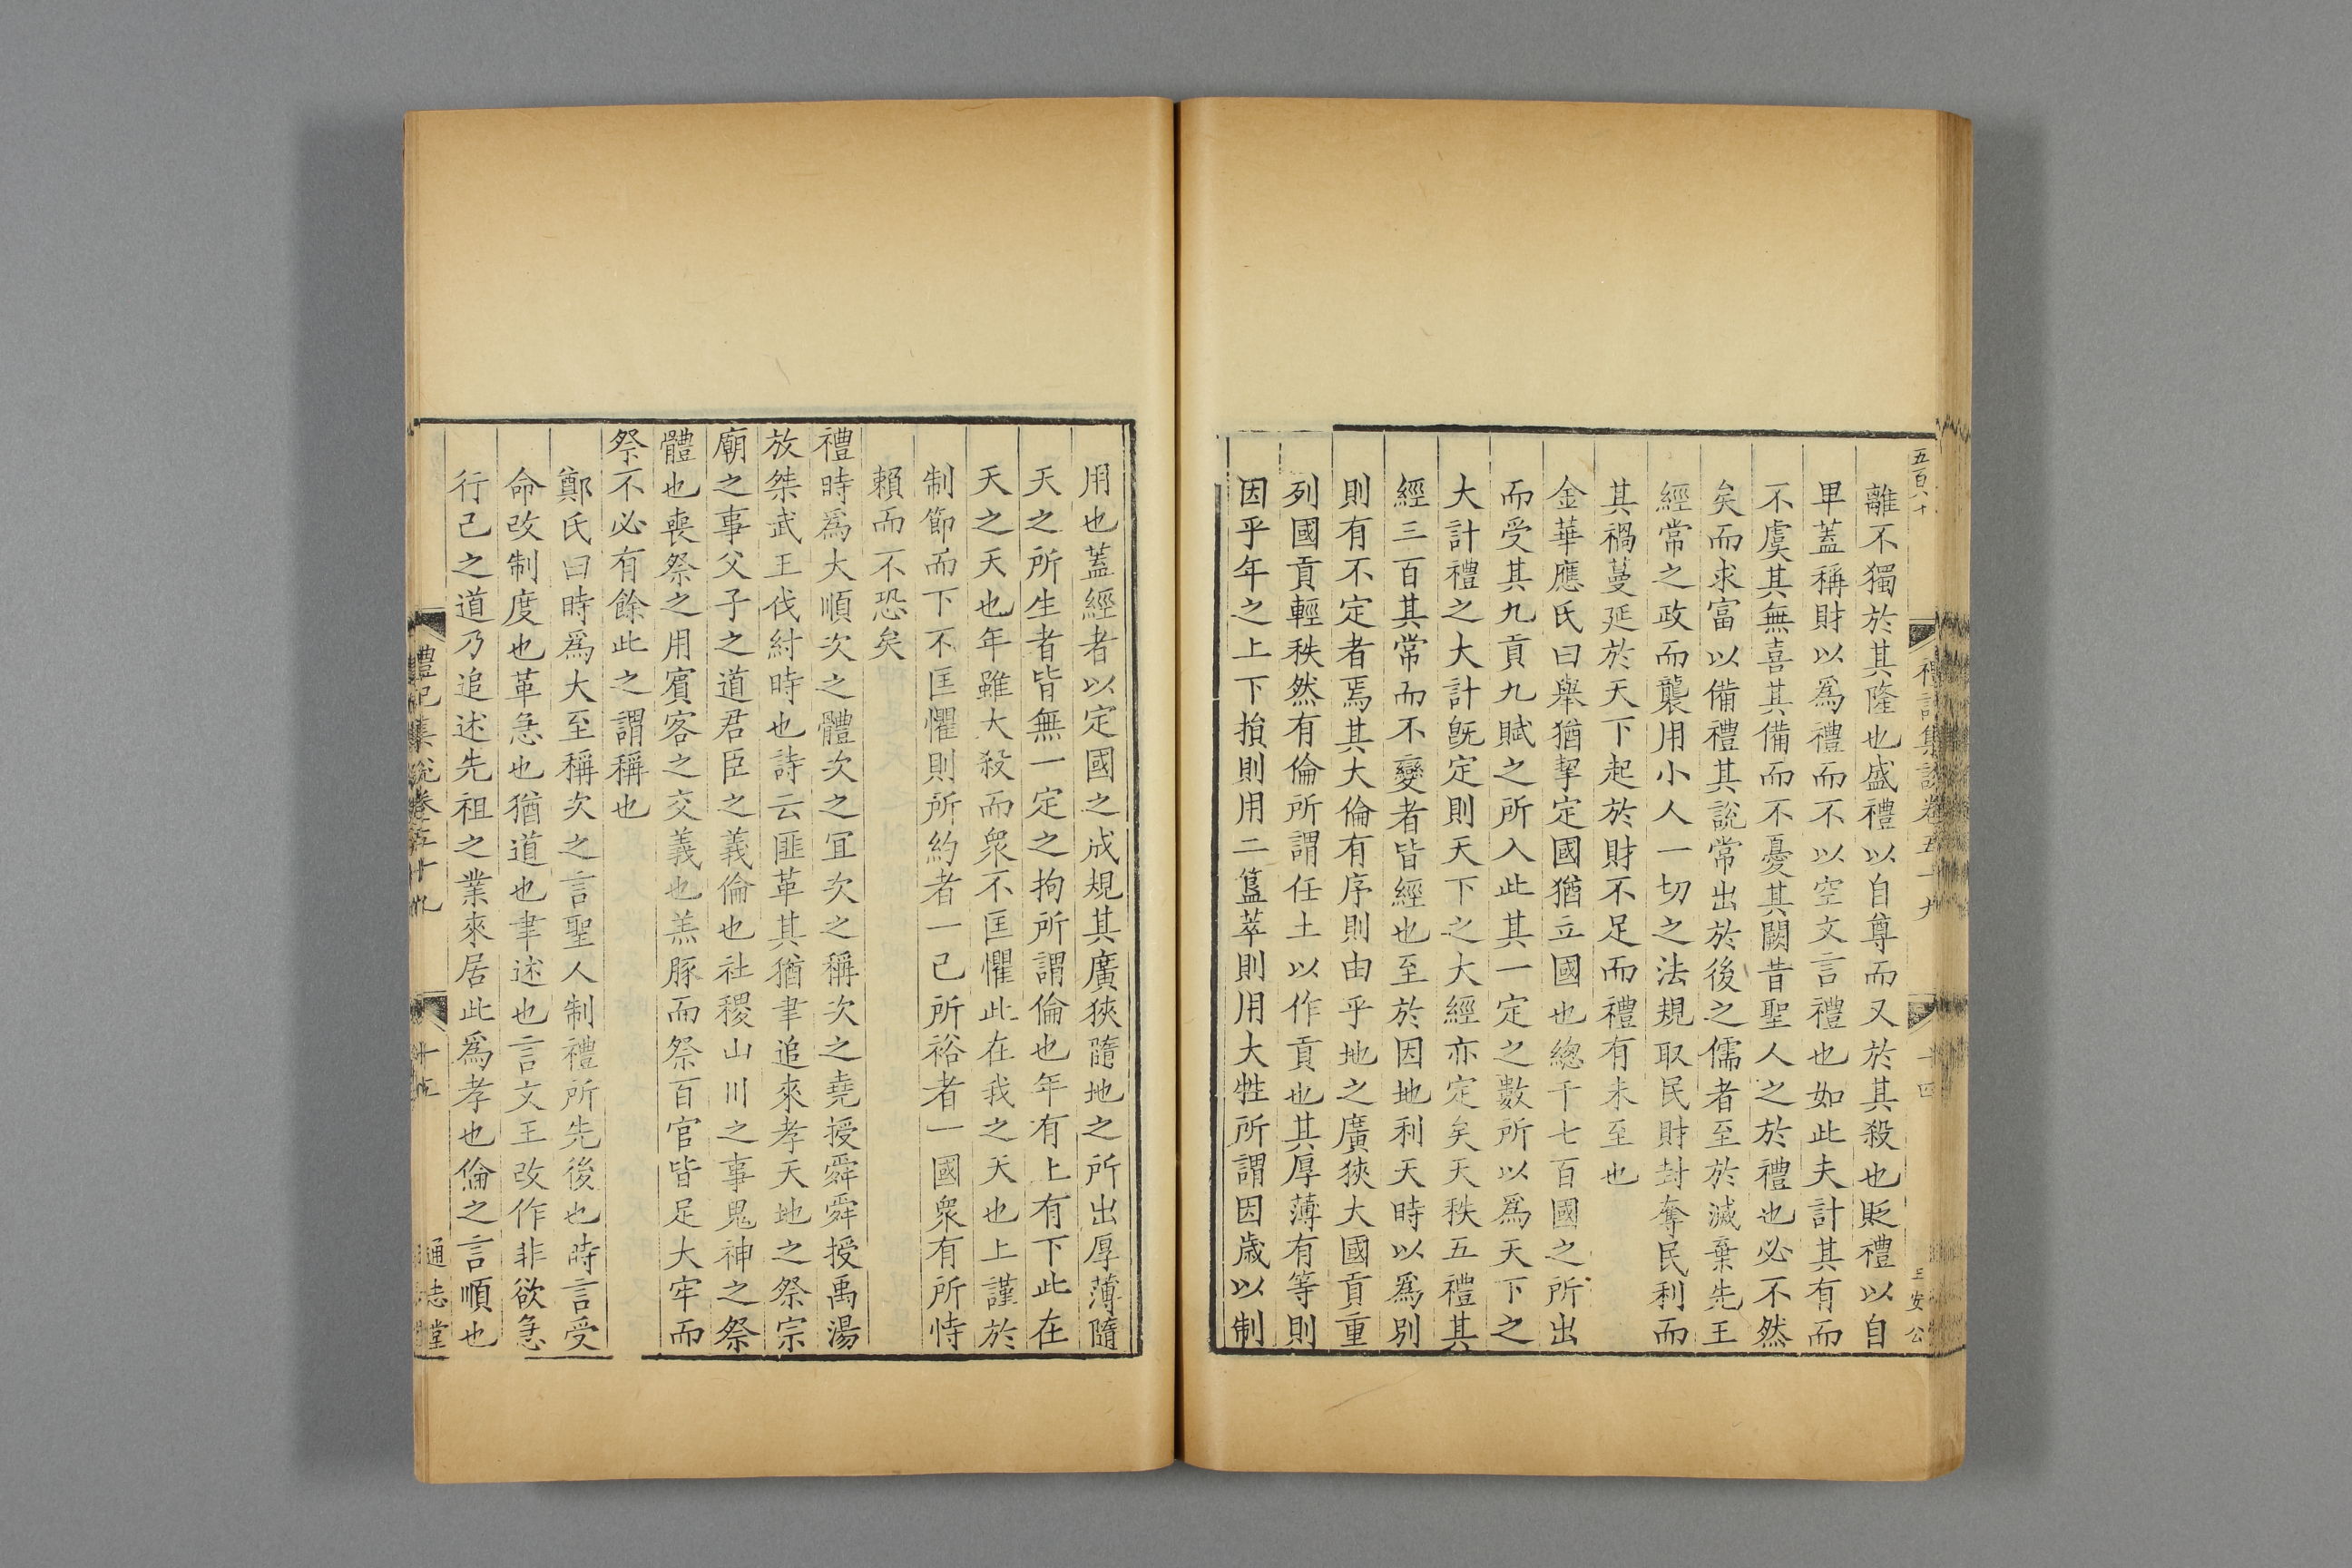 五百八十
禮記集說卷五十九
十四
三安
公
離不獨於其隆也盛禮以自尊而又於其殺也貶禮以自
卑蓋稱財以爲禮而不以空文言禮也如此夫計其有而
不虞其無喜其備而不憂其闕昔聖人之於禮也必不然
矣而求富以備禮其說常出於後之儒者至於滅棄先王
經常之政而襲用小人一切之法規取民財封奪民利而
其禍蔓延於天下起於財不足而禮有未至也
金華應氏曰舉猶挈定國猶立國也總千七百國之所出
而受其九貢九賦之所入此其一定之數所以爲天下之
大計禮之大計旣定則天下之大經亦定矣天秩五禮其
經三百其常而不變者皆經也至於因地利天時以爲別
則有不定者焉其大倫有序則由乎地之廣狹大國貢重
列國貢輕秩然有倫所謂任土以作貢也其厚薄有等則
因乎年之上下損則用二簋萃則用大牲所謂因歲以制
用也蓋經者以定國之成規其廣狹隨地之所出厚薄隨
天之所生者皆無一定之拘所謂倫也年有上有下此在
天之天也年雖大殺而衆不匡懼此在我之天也上謹於
制節而下不匡懼則所約者一己所裕者一國衆有所恃
賴而不恐矣
禮時爲大順次之體次之宜次之稱次之堯授舜舜授禹湯
放桀武王伐紂時也詩云匪革其猶聿追來孝天地之祭宗
廟之事父子之道君臣之義倫也社稷山川之事鬼神之祭
體也喪祭之用賓客之交義也羔豚而祭百官皆足大牢而
祭不必有餘此之謂稱也
鄭氏曰時爲大至稱次之言聖人制禮所先後也時言受
命改制度也革急也猶道也聿述也言文王改作非欲急
行己之道乃追述先祖之業來居此爲孝也倫之言順也
禮記集說卷五十九
十五
通志堂